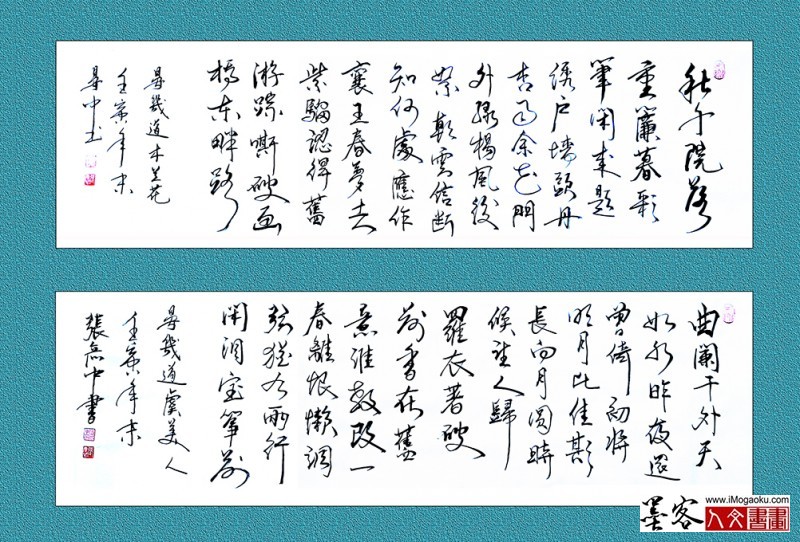 秋千院落
重簾暮彩
筆闲来題
绣户墙頭丹
杏雨余花門
外绿楊風後
絮朝雲信断
知何處應作
襄王春夢去
紫騮認得舊
游踪嘶過画
橋东畔路
晏幾道木兰花
壬寅年末
曲闌干外天
如水昨夜還
曾倚初将
明月比佳期
長向月圆時
候望人歸
羅衣著破
前香在舊
意誰教改一
春離恨懒調
弦猶有兩行
闲淚宝筝前
晏幾道虞美人
壬寅年末
張無中書
www.iMogaoku.com
墨客
人文書畫